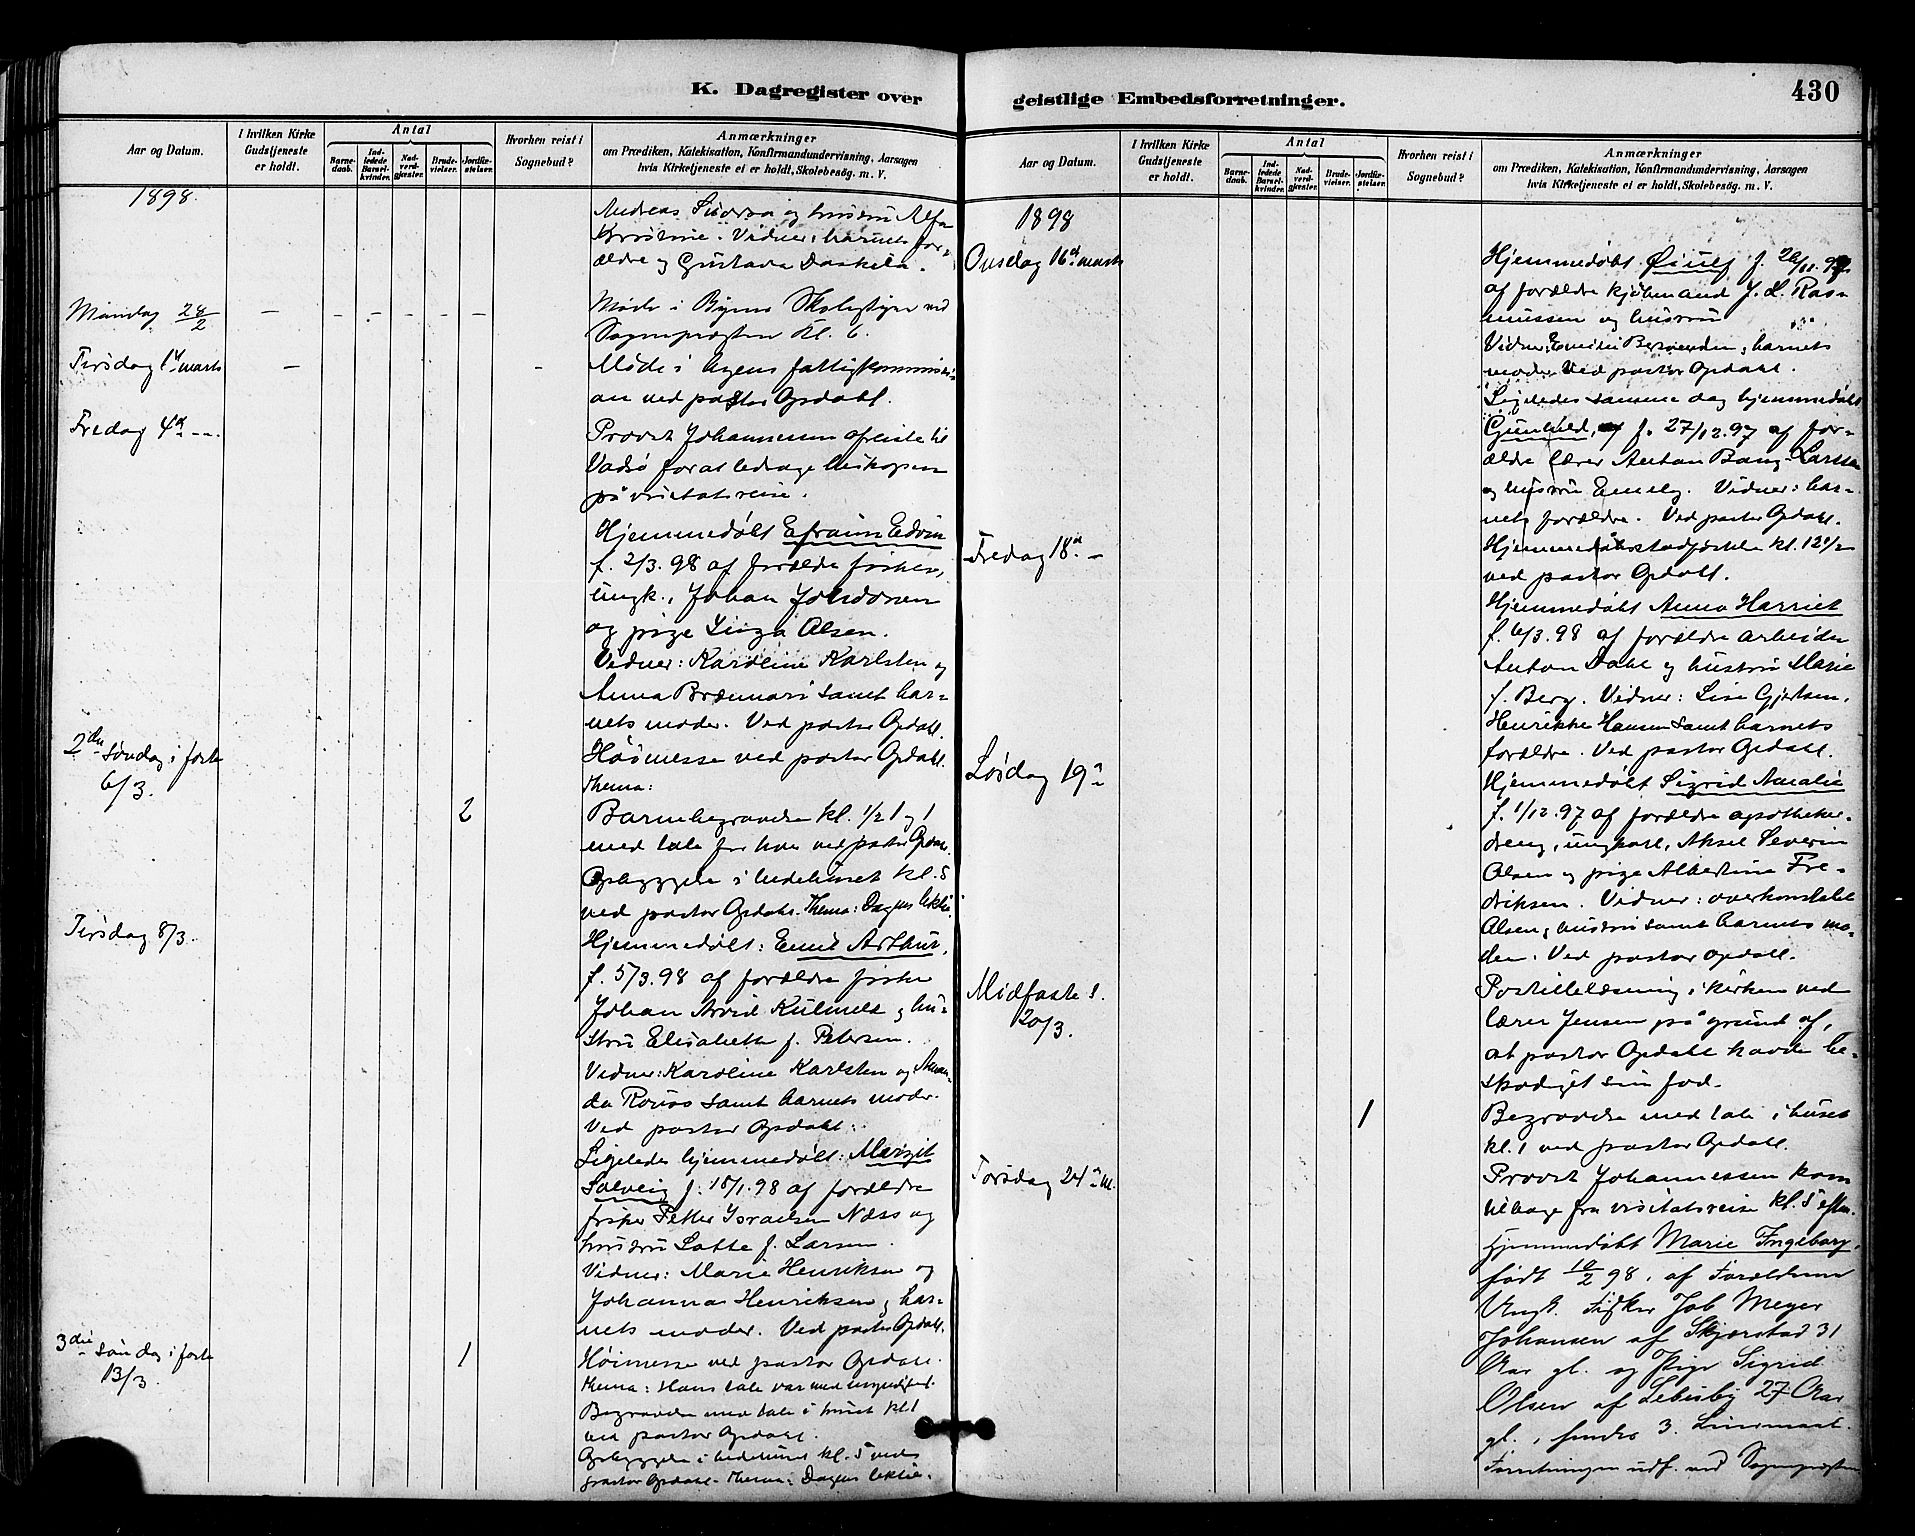 K. Dagregister over
geistlige Embedsforretninger.
430
Aar og Datum.
I hvilken Kirke Gudstjeneste er holdt.
Antal
Barne-daab.
Ind-ledede Barsel-kvinder.
Nad-verd-gjester.
Brude-vielser.
Jordfæ-stelser.
Hvorhen reist i Sognebud?
Anmærkninger
om Prædiken, Katekisation, Konfirmandundervisning, Aarsagen
hvis Kirketjeneste ei er holdt, Skolebesøg. m. V.
1898.
Andreas og hustru Alfa
Kristine. Vidner: barnets for-
ældre og Gustava Daskela.
Mandag 28/2
Møde i Byens Skolestyre ved
Sognepresten Kl. 6.
Tirsdag 1ste marts
Møde i byens fattigkommissi-
on ved pastor Opdahl.
Fredag 4de
Provst Johannessen afreiste til
Vadsø for at ledsage biskopen
på visitatsreise.
Hjemmedøbt Efraim Edvin
f. 2/3.98 af forældre fisker,
ungk., Johan Johnsen
og pige Olsen.
Vidner: Karoline Karlsten og
Anna samt bar-
nets moder. Ved pastor Opdahl.
2den søndag i faste
6/3.
Høimesse ved pastor Opdahl.
Thema:
2
Barnebegravelse kl. 1/2 1 og 1
med tale for hver ved pastor Opdahl.
Opbyggelse i bedehuset kl. 5
ved pastor Opdahl. Thema: Dagens lektie.
Tirsdag 8/3.
Hjemmedøbt: Emil Arthur,
f. 5/3.98 af forældre fisker
Johan Arvid og hu-
stru Elisabeth f. Petersen.
Vidner: Karoline Karlsten og Aman-
da samt barnets moder.
Ved pastor Opdahl.
Ligeledes hjemmedøbt: Margit
Solveig f. 18/1.98 af forældre
fisker Petter Israelsen Næss og
hustru Lotte f. Larsen.
Vidner: Marie Henriksen og
Johanna Henriksen og bar-
nets moder. Ved pastor Opdahl.
3die søndag i faste
13/3.
1
Høimesse ved pastor Opdahl.
Thema: Hans tale var med myndighed.
Begravelse med tale i huset kl 1
ved pastor Opdahl.
Opbyggelse i bedehuset kl. 5 ved
pastor Opdahl. Thema: Dagens lektie.
Aar og Datum.
I hvilken Kirke Gudstjeneste er holdt.
Antal
Barne-daab.
Ind-ledede Barsel-kvinder.
Nad-verd-gjester.
Brude-vielser.
Jordfæ-stelser.
Hvorhen reist i Sognebud?
Anmærkninger
om Prædiken, Katekisation, Konfirmandundervisning, Aarsagen
hvis Kirketjeneste ei er holdt, Skolebesøg. m. V.
1898
Onsdag 16de marts
Hjemmedøbt f. 26/11.97
af forældre kjøbmand J. L. Ras-
mussen og hustru
Vidner: Emilie og barnets
moder. Ved pastor Opdahl.
Ligeledes samme dag hjemmedøbt
Gunhild, f. 27/12.97 af for-
ældre lærer Anton Bang-Larssen
og hustru Emely. Vidner: bar-
nets forældre. Ved pastor Opdahl.
Fredag 18de
Hjemmedåbsstadfæstelse kl. 12 1/2
ved pastor Opdahl.
Hjemmedøbt Anna Harriet
f. 6/3.98 af forældre arbeider
Anton Dahl og hustru Marie
f. Berg. Vidner: Lise Gjertsen,
Henrikke Hansen samt barnets
forældre. Ved pastor Opdahl.
Lørdag 19de
Hjemmedøbt Sigrid Amalie
f. 1/12.97 af forældre apotheker-
dreng, ungkarl, Aksel Severin
Olsen og pige Albertine Fre-
driksen. Vidner: overkonstabel
Olsen og hustru samt barnets mo-
der. Ved pastor Opdahl.
Midfaste s.
20/3.
Postillelæsning i kirken ved
lærer Jensen på grund af,
at pastor Opdahl havde be-
skadiget sin fod.
1
Begravelse med tale i huset
kl. 1 ved pastor Opdahl.
Torsdag 24de m.
Provst Johannessen kom
tilbage fra visitatsreise kl. 5 efterm.
Hjemmedøbt Marie Ingeborg,
født 10/2 98, af Forældrene
Ungk. Fisker Job Meyer
Johansen af Skjerstad 31
Aar gl. og Pige Sigrid
Olsen af Lebesby 27 Aar
gl., hendes 3. Leiermaal.
Forretningen udf. ved Sognepresten